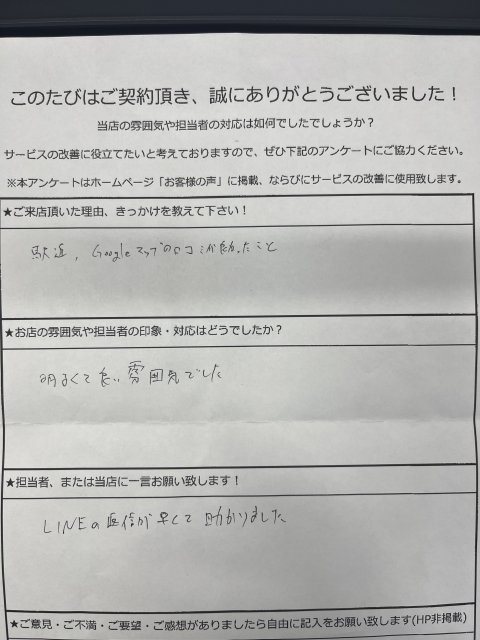 このたびはご契約頂き、誠にありがとうございました！
当店の雰囲気や担当者の対応は如何でしたでしょうか？
サービスの改善に役立てたいと考えておりますので、ぜひ下記のアンケートにご協力ください。
※本アンケートはホームページ「お客様の声」に掲載、ならびにサービスの改善に使用致します。
★ご来店頂いた理由、きっかけを教えて下さい！
駅近，Googleマップの口コミが良かったこと
★お店の雰囲気や担当者の印象・対応はどうでしたか？
明るくて良い雰囲気でした
★担当者、または当店に一言お願い致します！
LINEの返信が早くて助かりました
★ご意見・ご不満・ご要望・ご感想がありましたら自由に記入をお願い致します(HP非掲載)